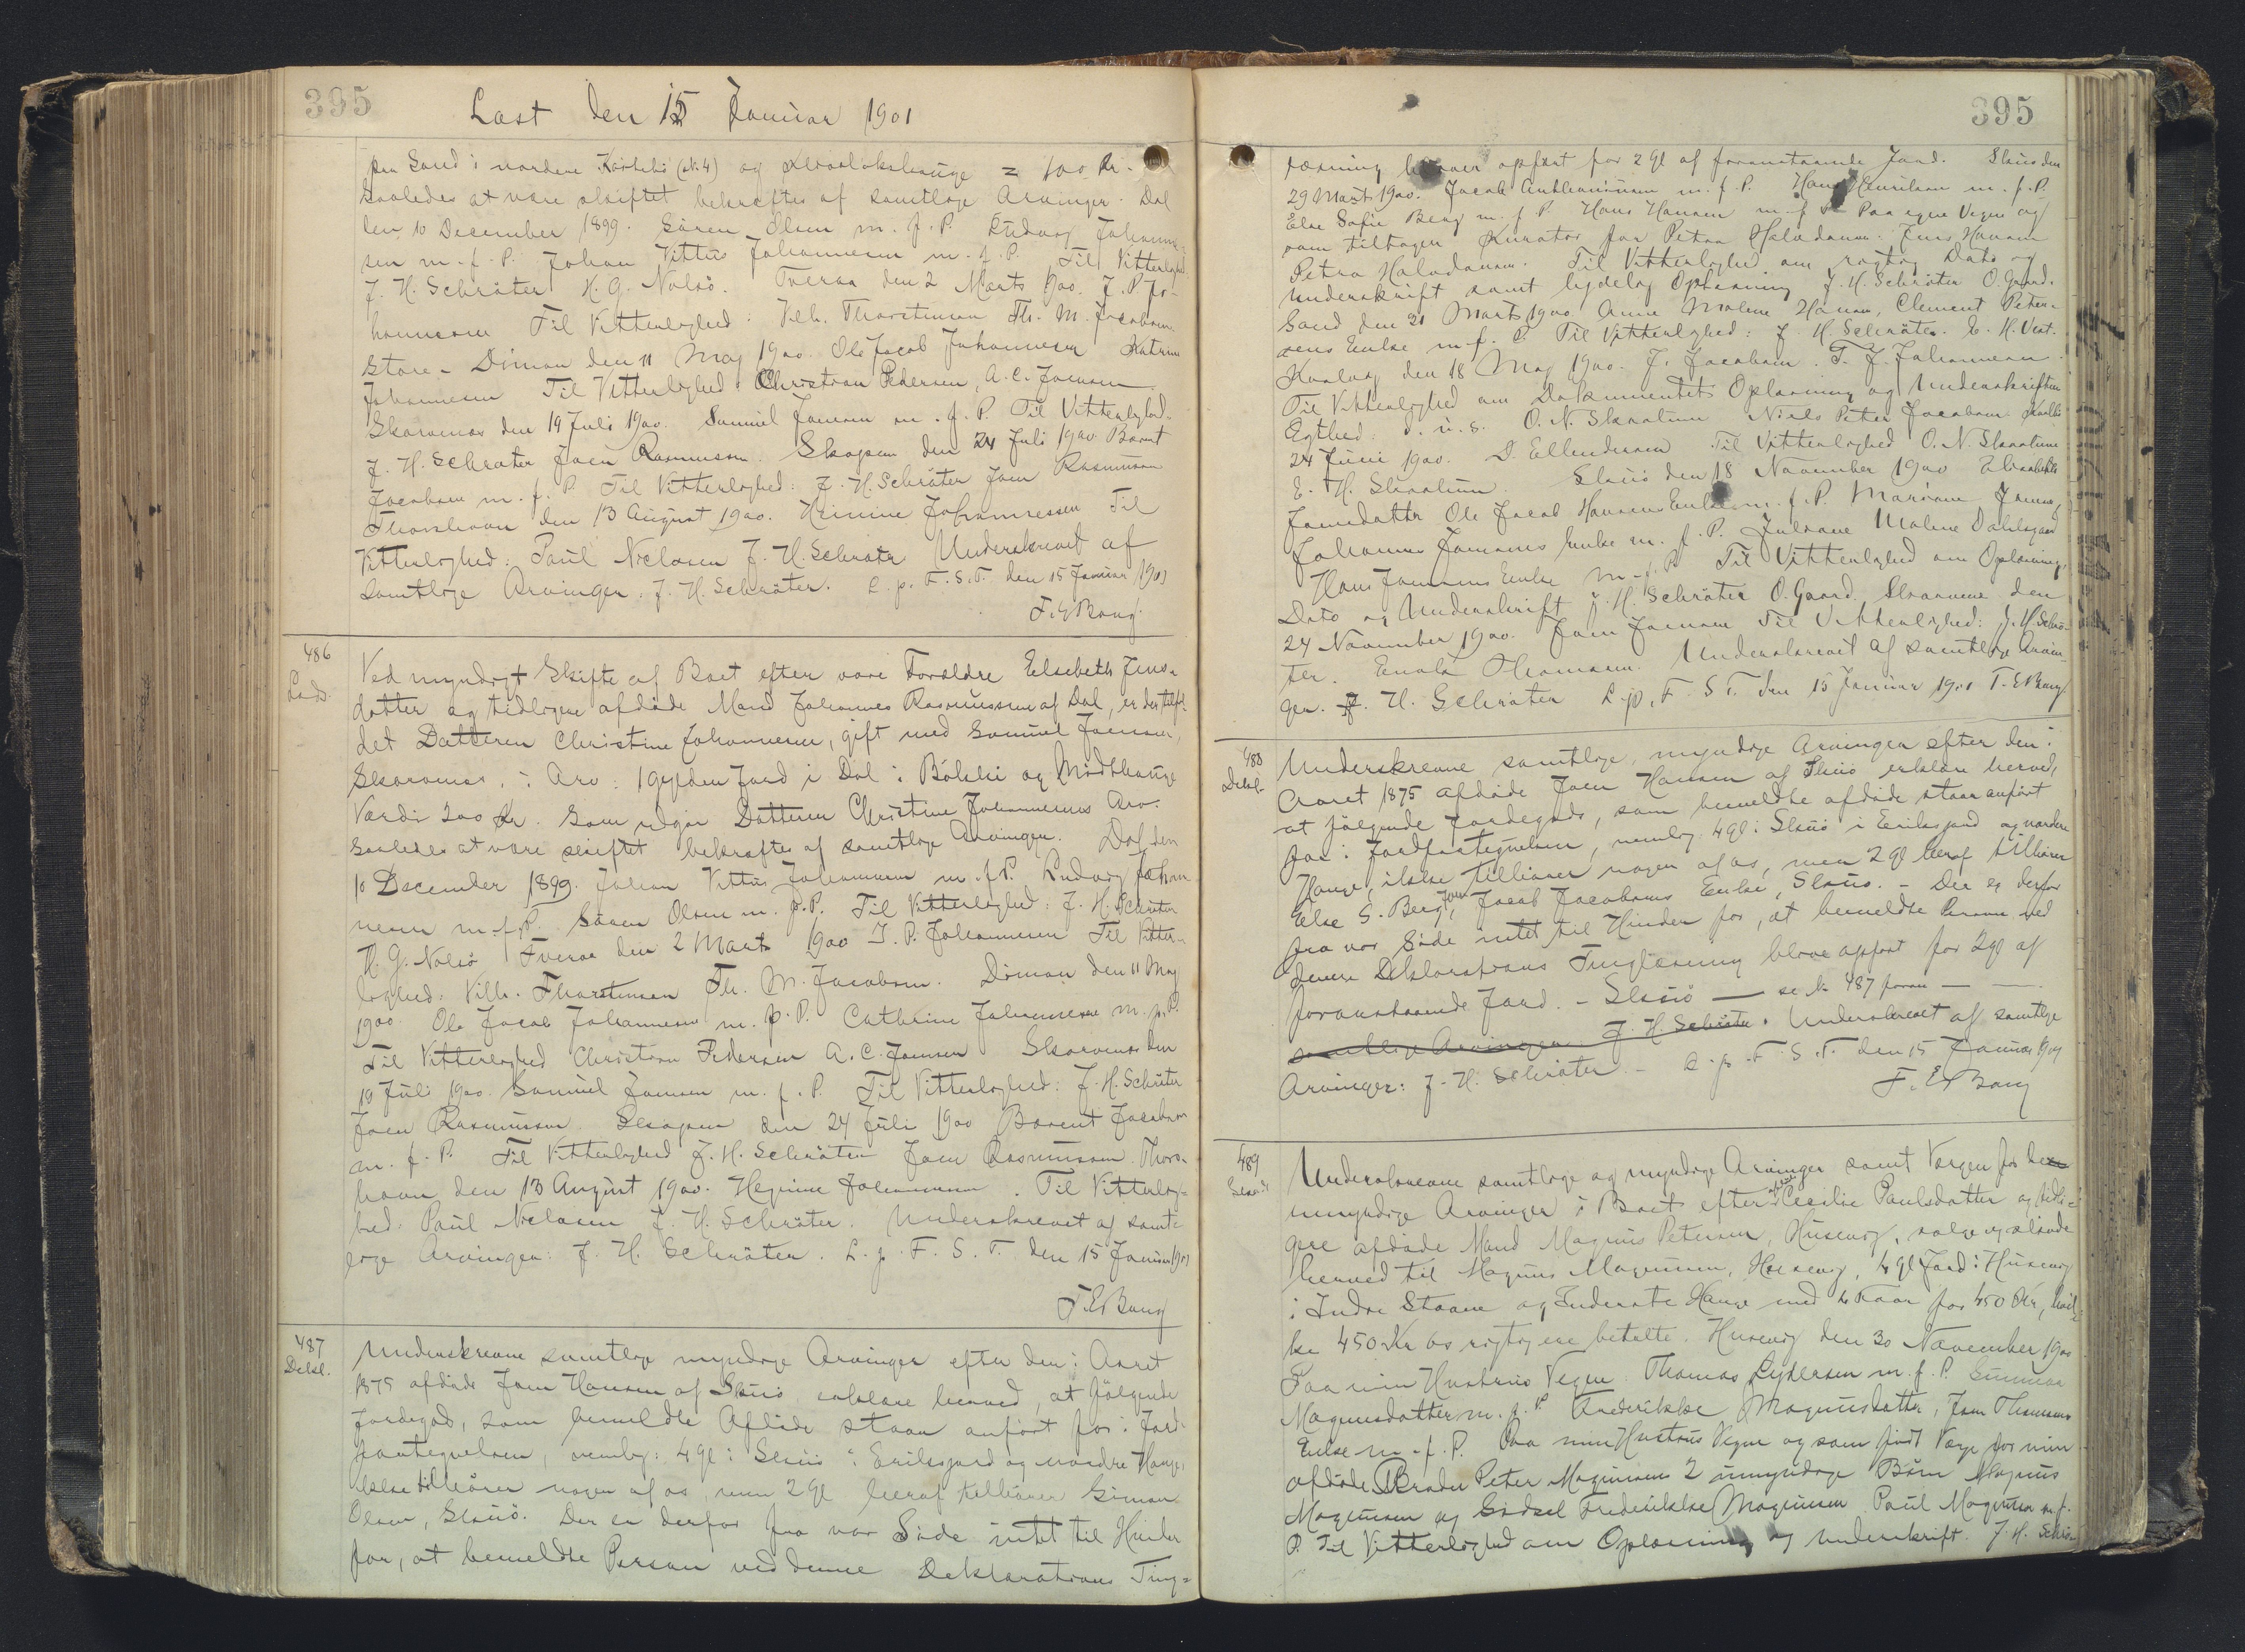 395
Læst den 15 Januar 1901
fra Sand i nordere (No 4) og = 100 Kr.
Saaledes at være skiftet bekræftes af samtlige Arvinger. Dal
den 10 December 1899. Sören Olsen m. f. P. Ludvig Johanne-
sen m. f. P. Johan Vittus Johannesen m. f. P. Til Vitterlighed
J. H. Schröter H. G. Nolsö. Tveraa den 2 Marts 1900. J. P. Jo-
hannesen Til Vitterlighed: Vilh. Thorsteinsen Th. M. Jacobsen.
Store-Dimon den 11 Maj 1900. Ole Jacob Johannesen Katrine
Johannesen Til Vitterlighed: Christian Pedersen, A. C. Joensen
Skarvenes den 19 Juli 1900. Samuel Joensen m. f. P. Til Vitterlighed.
J. H. Schröter Joen Rasmussen. Skopen den 24 Juli 1900 Barent
Jacobsen m. f. P. Til Vitterlighed: J. H. Schröter Joen Rasmussen
Thorshavn den 13 August 1900. Johannessen Til
Vitterlighed: Paul Niclasen J. H. Schröter Underskrevet af
samtlige Arvinger. J. H. Schröter. L. p. F. S. T. den 15 Januar 1901
T. E. Bang.
486
Ved myndigt Skifte af Boet efter vore Forældre Elsebeth Jens-
datter og tidligere afdöde Mand Johannes Rasmussen af Dal, er der tilfal-
det Datteren Christine Johannesen, gift med Samuel Joensen,
Skarvenes, i Arv: 1 Gylden Jord i Dal i og
Værdi 200 Kr. Som udgör Datteren Christine Johannesens Arv.
Saaledes at være skiftet bekræftes af samtlige Arvinger. Dal, den
10 December 1899. Johan Vittus Johannesen m. f. P. Ludvig Johan-
nesen m. f. P. Sören Olsen m. f. P. Til Vitterlighed: J. H. Schröter
H. G. Nolsö Tveraa den 2 Marts 1900 J. P. Johannesen Til Vitter-
lighed: Vilh. Thorsteinsen Th. M. Jacobsen. Dimon den 11 Maj
1900 Ole Jacob Johannesen m. f. P. Cathrine Johannesen m. f. P.
Til Vitterlighed Christian Pedersen A. C. Joensen Skarvenes den
19 Juli 1900 Samuel Joensen m. f. P. Til Vitterlighed: J. H. Schröter
Joen Rasmussen. Skopen den 24 Juli 1900 Barent Jacobsen
m. f. P. Til Vitterlighed J. H. Schröter Joen Rasmussen. Thors-
havn den 13 August 1900. Johannesen. Til Vitterlig-
hed: Paul Niclasen J. H. Schröter. Underskrevet af samt-
lige Arvinger: J. H. Schröter. L. p. F. S. T. den 15 Januar 1901
T. E. Bang
487
Dekl.
Underskrevne samtlige myndige Arvinger efter den i Aaret
1875 afdöde Joen Hansen af Skuö erklære herved, at fölgende
Jordegods, som bemeldte Afdöde staar anfört for i Jord-
fortegnelsen, nemlig: 4 gl i Skuö i Eriksjord og nordre Hauge,
ikke tilhörer nogen af os, men 2 gl heraf tilhörer Simon
Olsen, Skuö. Der er derfor fra vor Side intet til Hinder
for, at bemeldte Person ved denne Deklarations Ting-
395
læsning bliver opfört for 2 gl af foranstaaende Jord. Skuö den
29 Marts 1900. Jacob m. f. P. Hans m. f. P.
Else Sofie Berg m. f. P. Hans Hansen m. f. P. Paa egne Vegne og
som tiltagen Kurator for Petra Halvdansen. Jens Hansen
Petra Halvdansen. Til Vitterlighed om rigtig Dato og
Underskrift samt tydelig Oplæsning J. H. Schröter O. Gaard.
Sand den 31 Marts 1900 Anne Malene Hansen, Clement Peter-
sens Enke m. f. P. Til Vitterlighed: J. H. Schröter.
den 18 Maj 1900. J. Jacobsen. T. J. Johannesen.
Til Vitterlighed om Dokumentets Oplæsning og Underskriftens
Ægthed: d. u. s. O. N. Skaalum Niels Peter Jacobsen
24 Juni 1900. D. Ellendersen Til Vitterlighed O. N. Skaalum
E. H. Skaalum Skuö den 18 November 1900 Elisabeth
Joensdatter Ole Jacob Hansens Enke m. f. P. Mariane Joensen,
Johannes Joensens Enke m. f. P. Juliane Malene Dahlsgaard
Hans Joensens Enke m. f. P. Til Vitterlighed om Oplæsning,
Dato og Underskrift J. H. Schröter O. Gaard. Skarvenes den
24 November 1900. Joen Joensen Til Vitterlighed: J. H. Schrö-
ter. Thomsen. Underskrevet af samtlige Arvin-
ger. J. H. Schröter L. p. F. S. T. den 15 Januar 1901 T. E. Bang
488
Dekl.
Underskrevne samtlige, myndige Arvinger efter den i
Aaret 1875 afdöde Joen Hansen af Skuö erklære herved,
at fölgende Jordegods, som bemeldte afdöde staar anfört
for i Jordfortegnelsen, nemlig: 4 gl i Skuö i Eriksjord og nordre
Hauge, ikke tilhörer nogen af os, men 2 gl heraf tilhörer
Else S. Berg, Jacob Jacobsens Enke, Skuö. - Der er derfor
fra vor Side intet til Hinder for, at bemeldte Person ved
denne Deklarations Tinglæsning bliver opfört for 2 gl af
foranstaaende Jord. - Skuö — se No 487 foran — —
samtlige Arvinger J. H. Schröter. Underskrevet af samtlige
Arvinger: J. H. Schröter. - L. p. F. S. T. den 15 Januar 1901
T. E. Bang
489
Underskrevne samtlige og myndige Arvinger samt Værgen for de
umyndige Arvinger i Boet efter afdöde Cecilie Paulsdatter og tidli-
gere afdöde Mand Magnus Petersen, Husevig, sælge og afstaa
herved til Magnus Magnussen, Husevig, 4 gl Jord i Husevig
i Indre Staane og Inderste Hauge med 4 Faar for 450 Kr, hvil-
ke 450 Kr os rigtig ere betalte. Husevig den 30 November 1900
Paa min Hustrus Vegne: Thomas Lydersen m. f. P. Sunneva
Magnusdatter m. f. P. Frederikke Magnusdatter, Joen Thomsens
Enke m. f. P. Paa min Hustrus Vegne og som född Værge for min
afdöde Broder Peter Magnussens 2 umyndige Börn Magnus
Magnussen og Sidsel Frederikke Magnussen Paul Magnussen m. f.
P. Til Vitterlighed om Oplæsning og Underskrift. J. H. Schrö-